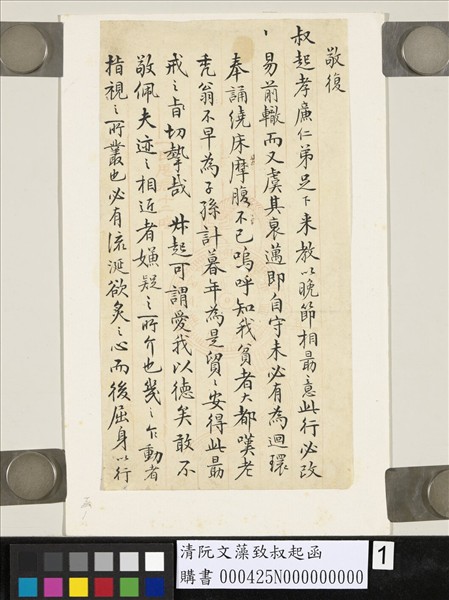 敬復
叔起孝廉仁弟足下来教以晚節相最意此行必改
易前轍而又虞其衰邁即自守未必有為迴環
奉誦繞床摩腹不已嗚呼知我貧者大都嘆老
禿翁不早為子孫計暮年為是貿貿安得此最
戒之旨切摯哉 叔起可謂愛我以德矣敢不
敬佩夫迹之相近者嫌疑之所介也幾之乍動者
指視之所叢也必有流涎欲炙之心而後屈身以行
清阮文藻致叔起函
購書 000425N000000000
1